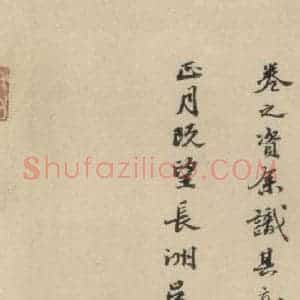 卷之資集識其
正月既望長洲吳
Shufaziliao.COM